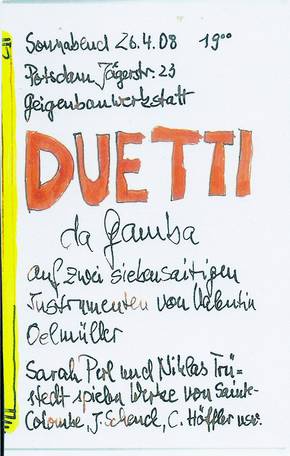 Sonnabend 26.4.08 19⁰⁰
Potsdam Jägerstr. 23
Geigenbauwerkstatt
DUETTI
da Gamba
auf zwei siebensaitigen
Instrumenten von Valentin
Oelmüller
Sarah Perl und Niklas Trü-
stedt spielen Werke von Sainte-
Colombe, J. Schenck, C. Höffler usw.